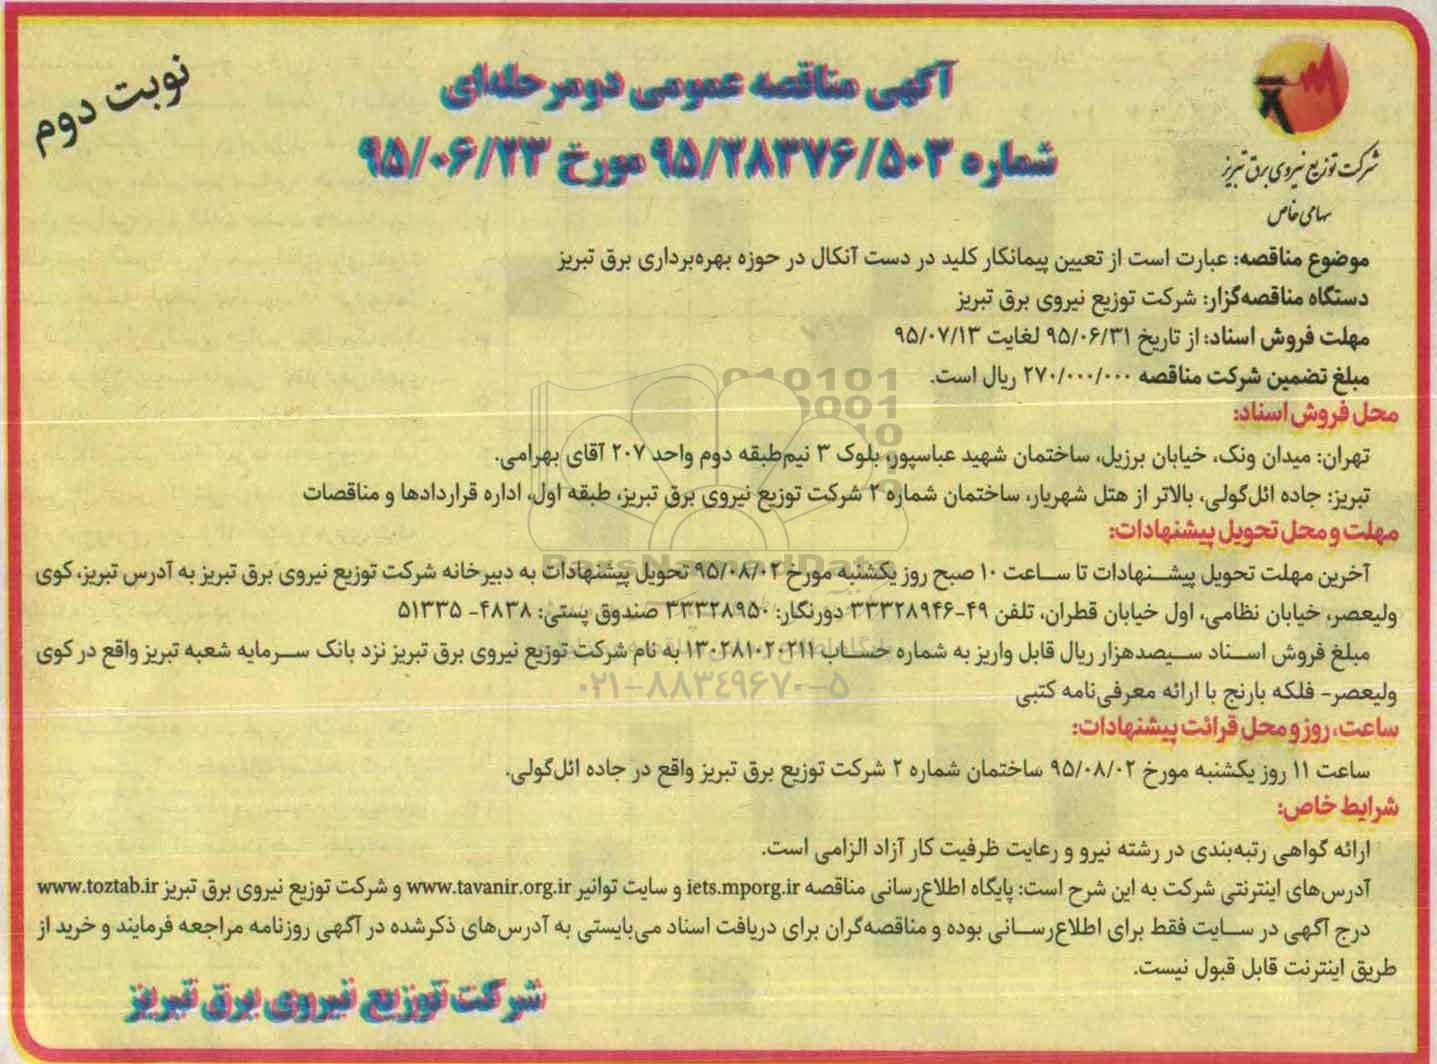 نوبت دوم
آگهی مناقصه عمومی دومرحله‌ای
شماره ۹۵/۲۸۳۷۶/۵۰۳ مورخ ۹۵/۰۶/۲۳
شرکت توزیع نیروی برق تبریز
سهامی خاص
موضوع مناقصه: عبارت است از تعیین پیمانکار کلید در دست آنکال در حوزه بهره‌برداری برق تبریز
دستگاه مناقصه‌گزار: شرکت توزیع نیروی برق تبریز
مهلت فروش اسناد: از تاریخ ۹۵/۰۶/۳۱ لغایت ۹۵/۰۷/۱۳
مبلغ تضمین شرکت مناقصه ۲۷۰/۰۰۰/۰۰۰ ریال است.
محل فروش اسناد:
تهران: میدان ونک، خیابان برزیل، ساختمان شهید عباسپور، بلوک ۳ نیم‌طبقه دوم واحد ۲۰۷ آقای بهرامی.
تبریز: جاده ائل‌گولی، بالاتر از هتل شهریار، ساختمان شماره ۲ شرکت توزیع نیروی برق تبریز، طبقه اول، اداره قراردادها و مناقصات
مهلت و محل تحویل پیشنهادات:
آخرین مهلت تحویل پیشنهادات تا ساعت ۱۰ صبح روز یکشنبه مورخ ۹۵/۰۸/۰۲ تحویل پیشنهادات به دبیرخانه شرکت توزیع نیروی برق تبریز به آدرس تبریز، کوی
ولیعصر، خیابان نظامی، اول خیابان قطران، تلفن ۴۹-۳۳۳۲۸۹۴۶ دورنگار: ۳۳۳۲۸۹۵۰ صندوق پستی: ۴۸۳۸- ۵۱۳۳۵
مبلغ فروش اسناد سیصدهزار ریال قابل واریز به شماره حساب ۱۳۰۲۸۱۰۲۰۲۱۱ به نام شرکت توزیع نیروی برق تبریز نزد بانک سرمایه شعبه تبریز واقع در کوی
ولیعصر- فلکه بارنج با ارائه معرفی‌نامه کتبی
۰۲۱-۸۸۳۴۹۶۷۰-۵
ساعت، روز و محل قرائت پیشنهادات:
ساعت ۱۱ روز یکشنبه مورخ ۹۵/۰۸/۰۲ ساختمان شماره ۲ شرکت توزیع برق تبریز واقع در جاده ائل‌گولی.
شرایط خاص:
ارائه گواهی رتبه‌بندی در رشته نیرو و رعایت ظرفیت کار آزاد الزامی است.
آدرس‌های اینترنتی شرکت به این شرح است: پایگاه اطلاع‌رسانی مناقصه iets.mporg.ir و سایت توانیر www.tavanir.org.ir و شرکت توزیع نیروی برق تبریز www.toztab.ir
درج آگهی در سایت فقط برای اطلاع‌رسانی بوده و مناقصه‌گران برای دریافت اسناد می‌بایستی به آدرس‌های ذکرشده در آگهی روزنامه مراجعه فرمایند و خرید از
طریق اینترنت قابل قبول نیست.
شرکت توزیع نیروی برق تبریز